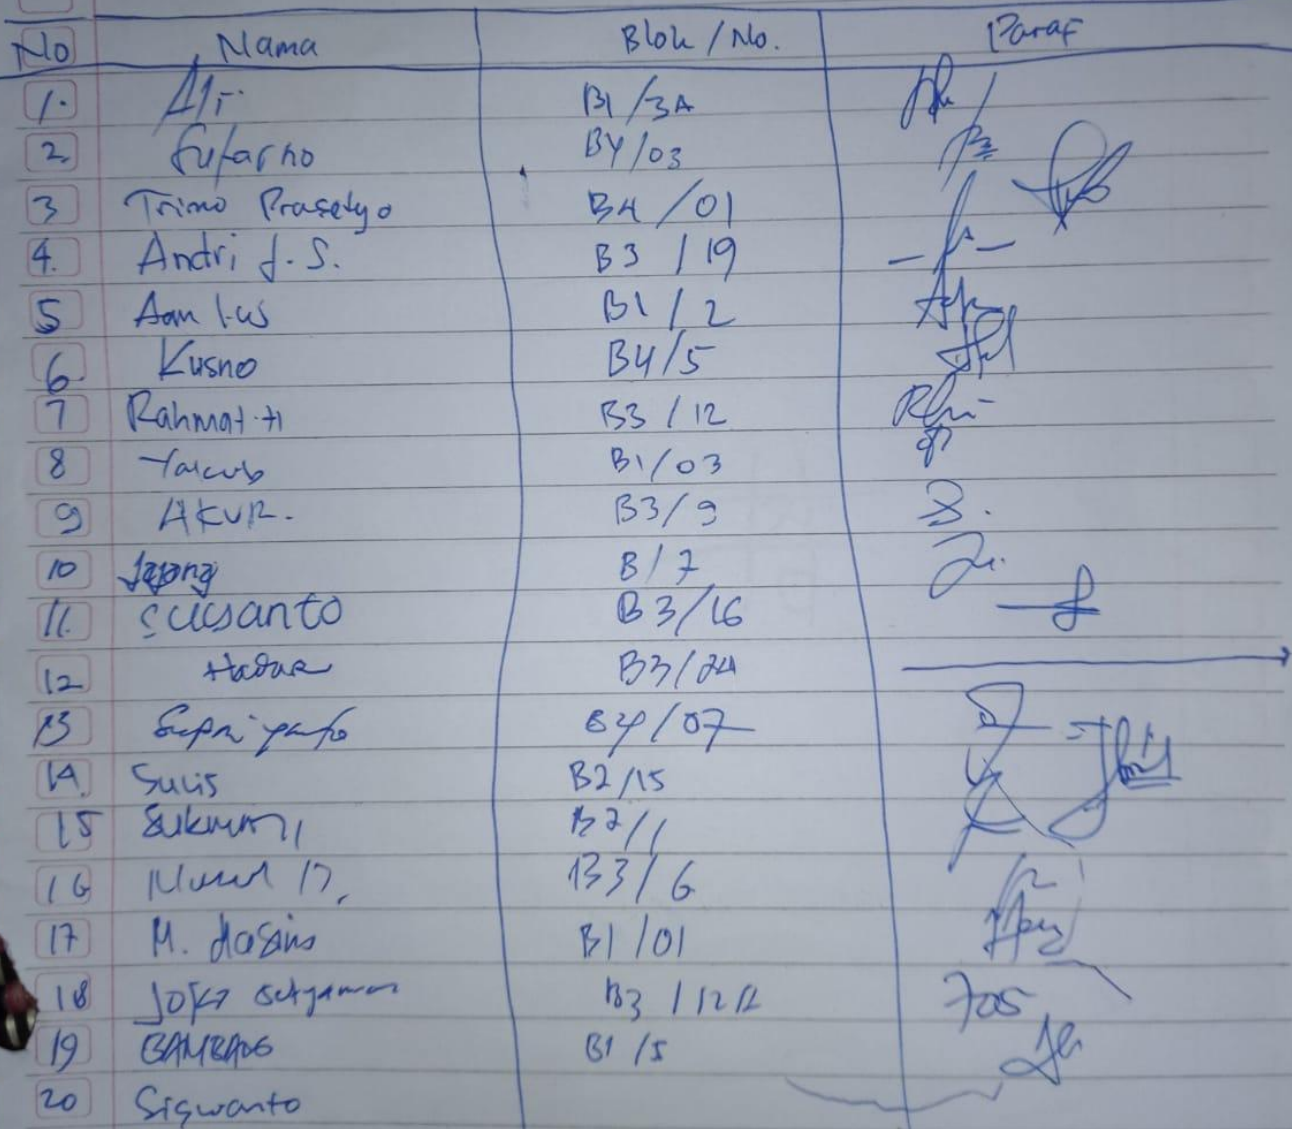 No Nama Blok / No. Paraf
1. Ali B1 /3A
2. Sufarno B4/03
3 Trimo Prasetyo B4 /01
4. Andri J. S. B3 / 19
5 Aan B1 / 2
6 Kusno B4/5
7 Rahmat. H B3 / 12
8 Yakub B1/03
9 AKUR. B3/9
10 Jajang B/7
11. Susanto B3/16
12 B3/24
13 Supriyanto B4/07
14. Sulis B2/15
15 B2/1
16 B3/6
17 M. Hasim B1/01
18 Joko Setyawan B3 /12A
19 BAMBANG B1 /5
20 Siswanto